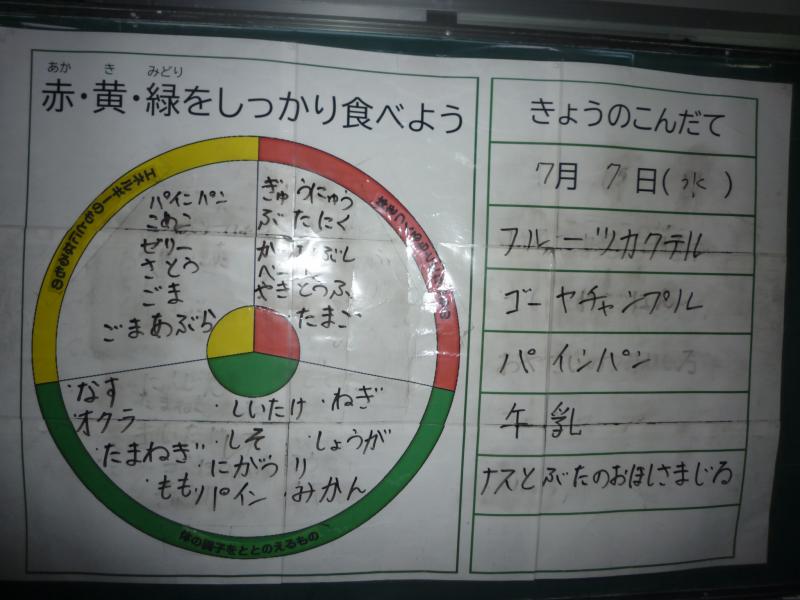 あか き みどり
赤・黄・緑をしっかり食べよう
エネルギーのもとになるもの
パインパン
こめこ
ゼリー
さとう
ごま
ごまあぶら
ぎゅうにゅう
ぶたにく
やきとうふ
たまご
・なす
オクラ
・しいたけ ・ねぎ
・たまねぎ ・しそ ・しょうが
・にがうり
・もも パイン ・みかん
体の調子をととのえるもの
きょうのこんだて
7月 7日(水)
フルーツカクテル
ゴーヤチャンプル
パインパン
牛乳
ナスとぶたのおほしさまじる